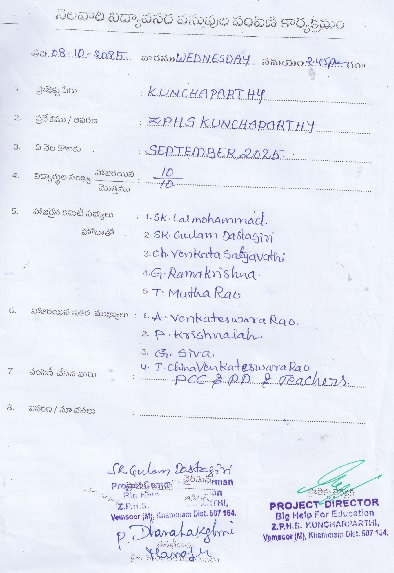 నెలవారి విద్యావసర వస్తువుల పంపిణి కార్యక్రమం
తేది.08-10-2025 వారము WEDNESDAY సమయం
1. ప్రాజెక్టు పేరు : KUNCHAPARTHY
2. ప్రదేశము / ఆవరణ : ZPHS KUNCHAPARTHY
3. ఏ నెల కొరకు : SEPTEMBER 2025
4. విద్యార్థుల సంఖ్య హాజరయిన / మొత్తము : 10/10
5. హాజరైన కమిటి సభ్యులు : 1. SK. Lalmohammad
హోదాతో : 2. SK. Gulam Dastagiri
3. Ch. Venkata Satyavathi
4. G. Ramakrishna
5. T. Mutha Rao
6. హాజరయిన ఇతర ముఖ్యులు : 1. A. Venkateswara Rao.
2. P. Krishnaiah
3. G. Siva
4. T. China Venkateswara Rao
7. పంపిణీ చేసిన వారు : PCC & PD & Teachers
8. వివరణ / సూచనలు :
SK. Gulam Dastagiri
చైర్మన్
Z.P.H.S.
Vemsoor (M), Khammam Dist. 507 164.
P. Dhanalakshmi
PROJECT DIRECTOR
Big Help For Education
Z.P.H.S. KUNCHARPARTHI,
Vemsoor (M), Khammam Dist. 507 164.